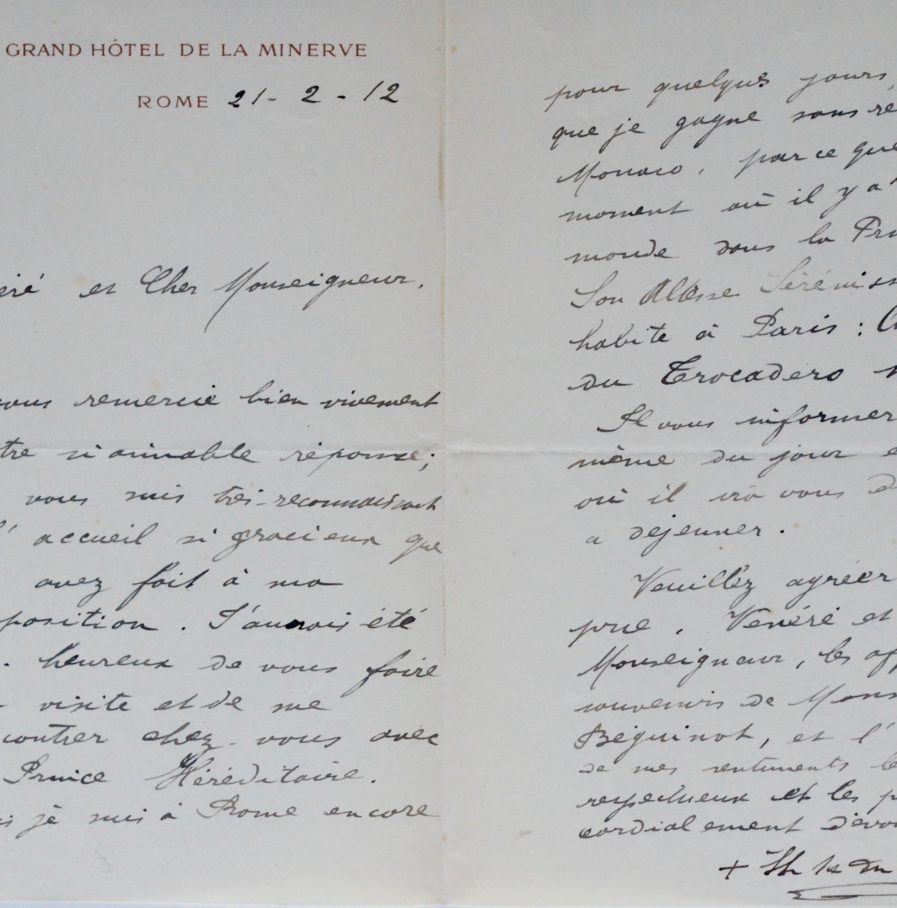 GRAND HÔTEL DE LA MINERVE
ROME 21-2-12
éré et Cher Monseigneur.
vous remercie bien vivement
tre si aimable réponse;
vous suis très-reconnaissant
l'accueil si gracieux que
avez fait à ma
position. J'aurais été
heureux de vous faire
visite et de me
contrer chez vous avec
Prince Héréditaire.
is je suis à Rome encore
pour quelques jours,
que je gagne sans re
Monaco, parce que
moment où il y a
monde dans la Pri
Son Altesse Séréniss
habite à Paris:
du Trocadero
Il vous informer
même du jour e
où il ira vous d
a déjeuner.
Veuillez agréer
prie, Vénéré et
Monseigneur, les aff
souvenirs de Mons
Béguinot, et l'
de mes sentiments le
respectueux et les p
cordialement dévou
+